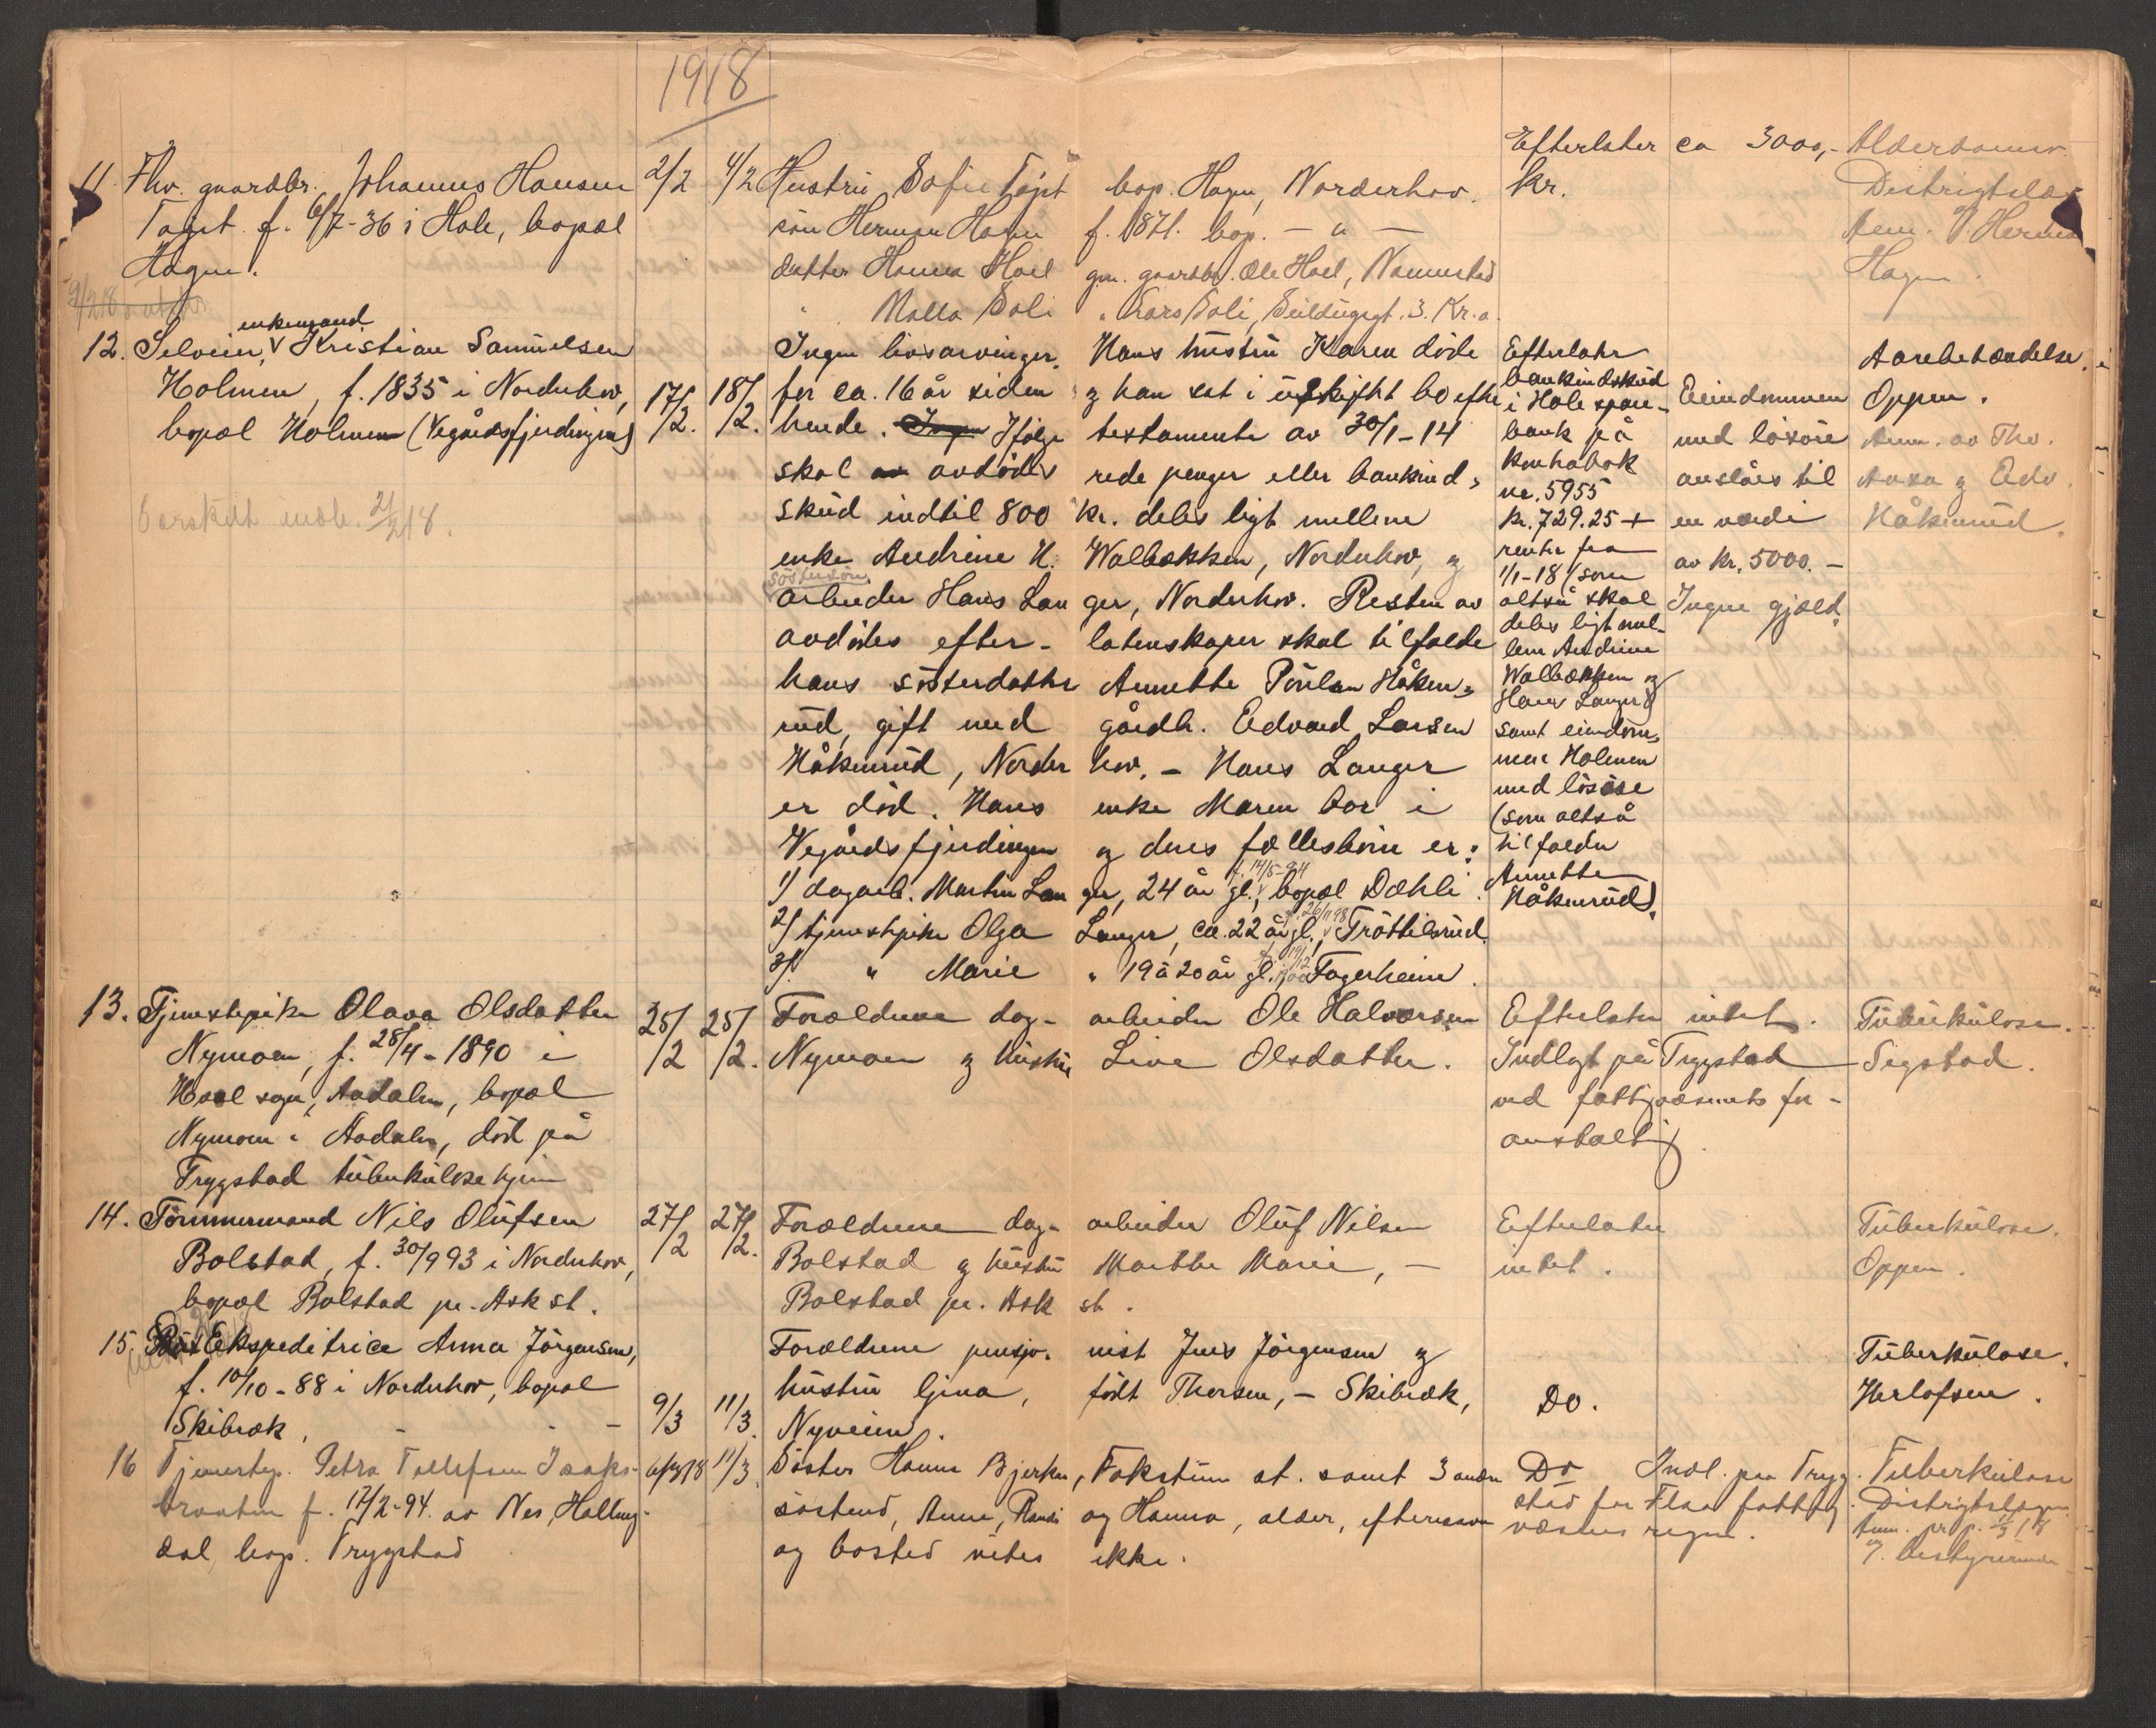 1918
11. Fhv. gaardbr. Johannes Hansen
Tajet f. 6/7-36 i Hole, bopæl
Hagen.
2/2
4/2
Hustru Sofie Tajet bop. Hagen, Norderhov.
søn Herman Hagen f. 1871. bop. — " —
datter Hanna Hoel gm. gaardbr. Ole Hoel,
" Malla Soli " Lars Soli, 3. Kr.a.
Efterlater ca 3000,-
kr.
Alderdomssv.
Distrigtslæg
Anm. Herman
Hagen.
12. Selveier, enkemand Kristian Samuelsen
Holmen, f. 1835 i Norderhov,
bopæl Holmen (Vegårdsfjerdingen)
17/2.
18/2.
børskilt indb. 21/2 18.
Ingen livsarvinger. Hans hustru Karen døde
for ca. 16 år siden og han sat i uskiftet bo efter
hende. Ifølge testamente av 30/1-14
skal avdødes rede penger eller bankind-
skud indtil 800 kr. deles ligt mellem
enke Andrine H. Wolbækken, Norderhov, og
søstersøn
arbeider Hans Langer, Norderhov. Resten av
avdødes efterlatenskaper skal tilfalde
hans søsterdatter Annette Håken-
rud, gift med gårdb. Edvard Larsen
Håkenrud, Norderhov. - Hans Langer
er død. Hans enke Maren bor i
Vegårdsfjerdingen og deres fællesbørn er:
1) dagarb. Martin Langer, 24 år gl., f. 14/5-94 bopæl Dæhli.
2) tjenestepike Olga Langer, ca. 22 år gl., Trøttelsrud.
3) " Marie " 19 à 20 år gl. Fagerheim.
Efterlater
bankindskud
i Hole spare-
bank på
kontrabok
nr. 5955
kr. 729.25 +
renter fra
1/1-18 (som
altså skal
deles ligt mel-
lem Andrine
Wolbækken og
Hans Langer)
samt eiendom-
men Holmen
med løsøre
(som altså
tilfalder
Annette
Håkenrud).
Eiendommen
med løsøre
anslåes til
en værdi
av kr. 5000.-
Ingen gjæld.
Aarebetændelse.
Oppen.
Anm. av Thv.
og Edv.
Håkenrud.
13. Tjenestepike Olava Olsdatter
Nymoen, f. 28/4-1890 i
Hval sogn, Aadalen, bopæl
Nymoen i Aadalen, død på
Trygstad tuberkulosehjem
25/2
25/2.
Forældrene dagarbeider Ole Halvorsen
Nymoen og hustru Live Olsdatter.
Efterlater intet.
Indlagt på Trygstad
ved fattigvæsenets for-
anstaltning.
Tuberkulose.
Segstad.
14. Tømmermand Nils Olufsen
Bolstad, f. 30/9 93 i Norderhov,
bopæl Bolstad pr. Ask st.
27/2
27/2.
Forældrene dagarbeider Oluf Nilsen
Bolstad og hustru Marthe Marie, —
Bolstad pr. Ask st.
Efterlater
intet.
Tuberkulose.
Oppen.
15. Ekspeditrice Anna Jörgensen,
f. 10/10-88 i Norderhov, bopæl
Skibræk,
9/3
11/3.
Forældrene pensjonist Jens Jörgensen og
hustru Gina, født Thorsen, - Skibræk,
Nyveien.
Do.
Tuberkulose.
Herlofsen.
16 Tjenestep. Petra Tollefsen Isaks-
braaten f. 17/2-94. av Nes, Halling-
dal, bop. Trygstad
6/3 18
11/3.
Søster Hanna Bjerken, Fokstuen st. samt 3 andre
søskend, Anne, Randi og Hanna, alder, efternavn
og bosted vites ikke.
Do Indl. paa Tryg-
stad for Flaa fattig-
væsens regn.
Tuberkulose
Distrigtslægen
Anm. pr. p. 11/3 18
af bestyrerinde